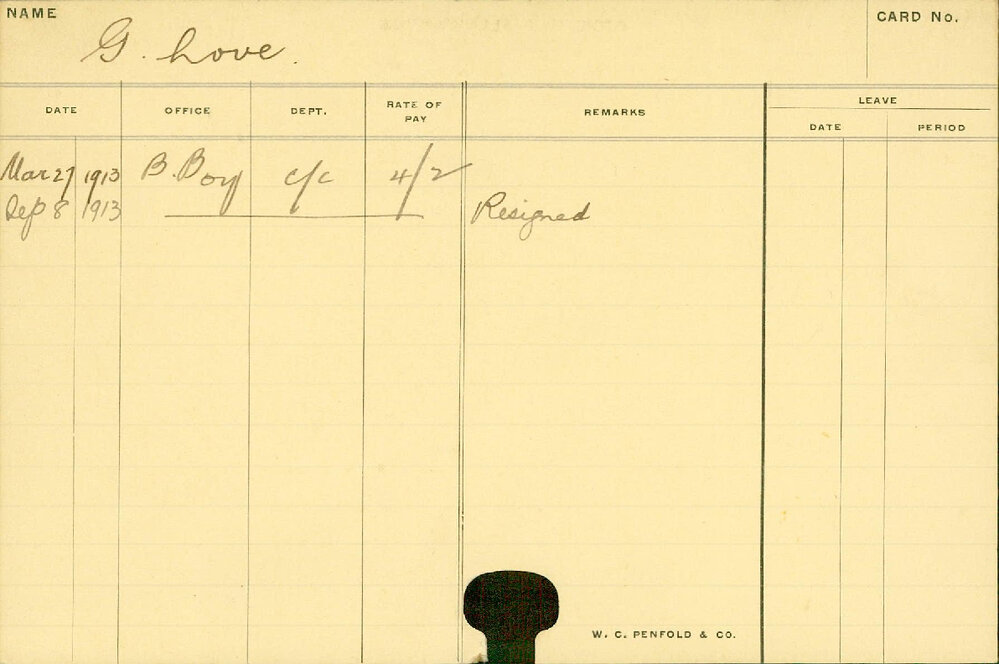 NAME
G. Love.
CARD No.
DATE OFFICE DEPT. RATE OF PAY REMARKS LEAVE
DATE PERIOD
Mar 27 1913 B. Boy c/c 4/2
Sep 8 1913 Resigned
W. C. PENFOLD & CO.